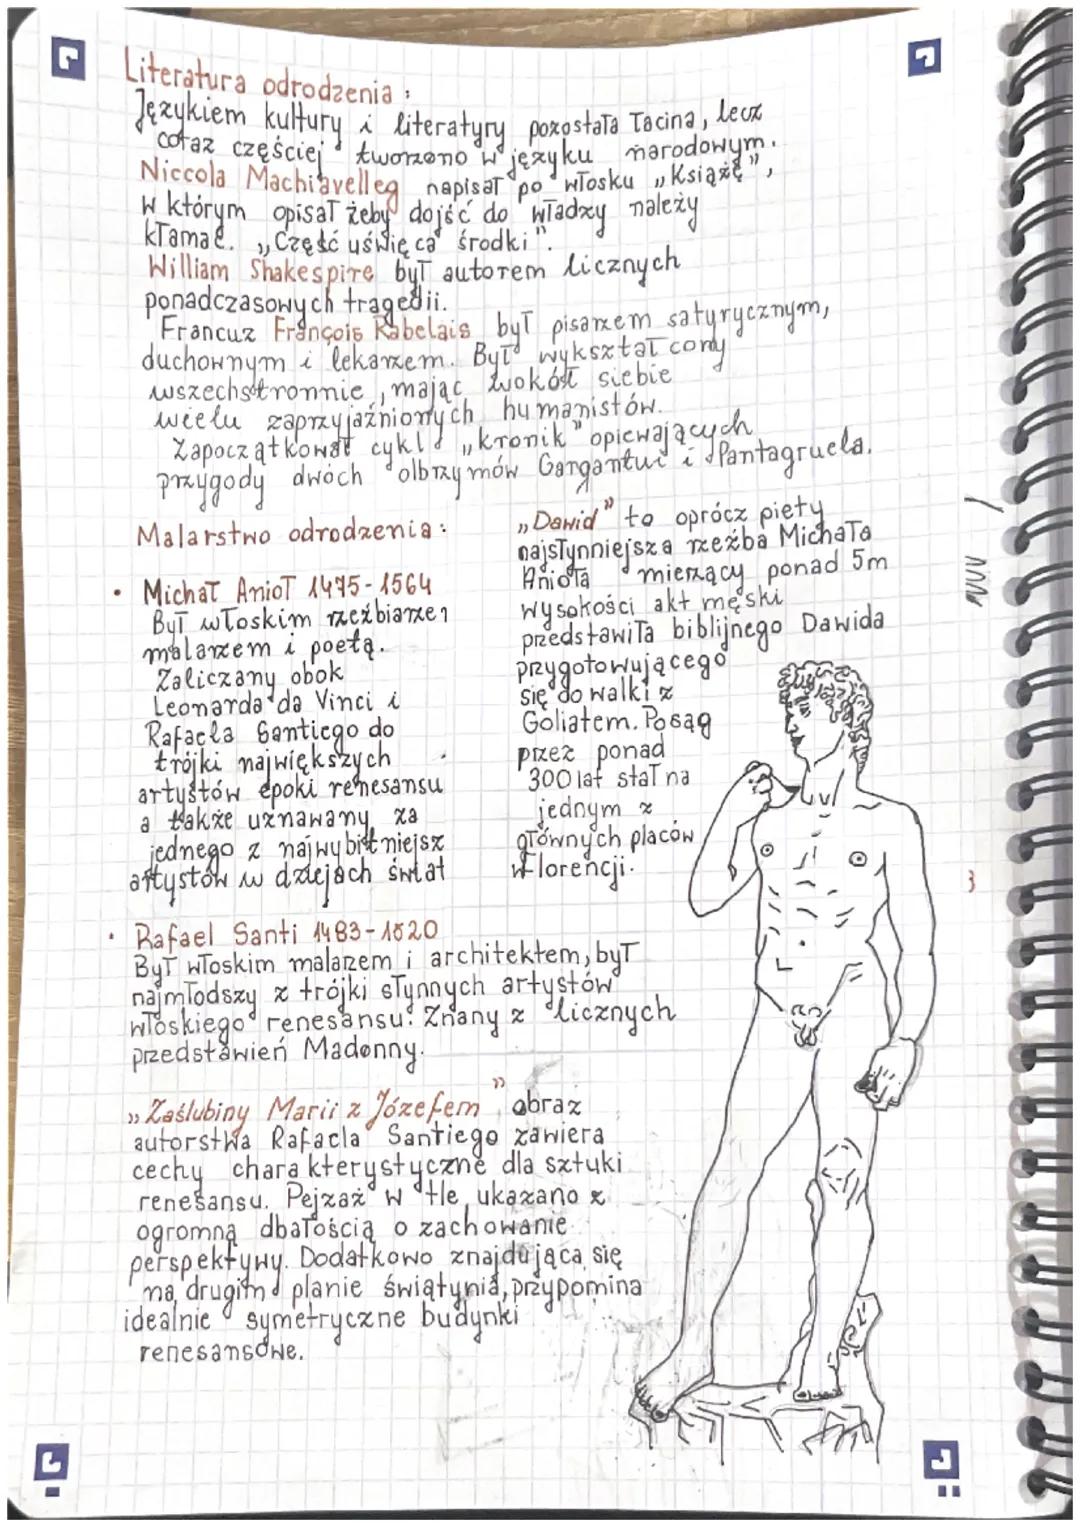 Literatura odrodzenia :
Językiem kultury i literatyry pozostała łacina, lecz
coraz częściej tworzono w języku narodowym.
Niccola Machiavelleg napisał po włosku „Książę",
w którym opisał żeby dojść do władzy należy
kłamać. „Część uświęca środki".
William Shakespire był autorem licznych
ponadczasowych tragedii.
Francuz François Rabelais był pisarzem satyrycznym,
duchownym i lekarzem. Był wykształcony
wszechstronnie, mając wokół siebie
wielu zaprzyjaźnionych humanistów.
Zapoczątkował cykl „kronik" opiewających
przygody dwóch olbrzymów Gargantui i Pantagruela.
Malarstwo odrodzenia :
• Michał Anioł 1475-1564
Był włoskim rzeźbiarzem
malarzem i poetą.
Zaliczany obok
Leonarda da Vinci i
Rafaela Santiego do
trójki największych
artystów epoki renesansu
a także uznawany za
jednego z najwybitniejsz
artystów w dziejach świat
„Dawid" to oprócz piety
najsłynniejsza rzeźba Michała
Anioła mierzący ponad 5m
wysokości akt męski
przedstawiła biblijnego Dawida
przygotowującego
się do walki z
Goliatem. Posąg
przez ponad
300 lat stał na
jednym z
głównych placów
Florencji.
• Rafael Santi 1483-1520
Był włoskim malarzem i architektem, był
najmłodszy z trójki słynnych artystów
włoskiego renesansu. Znany z licznych
przedstawień Madonny.
„Zaślubiny Marii z Józefem" obraz
autorstwa Rafaela Santiego zawiera
cechy charakterystyczne dla sztuki
renesansu. Pejzaż w tle ukazano z
ogromną dbałością o zachowanie
perspektywy. Dodatkowo znajdująca się
na drugim planie świątynia, przypomina
idealnie symetryczne budynki
renesansowe.